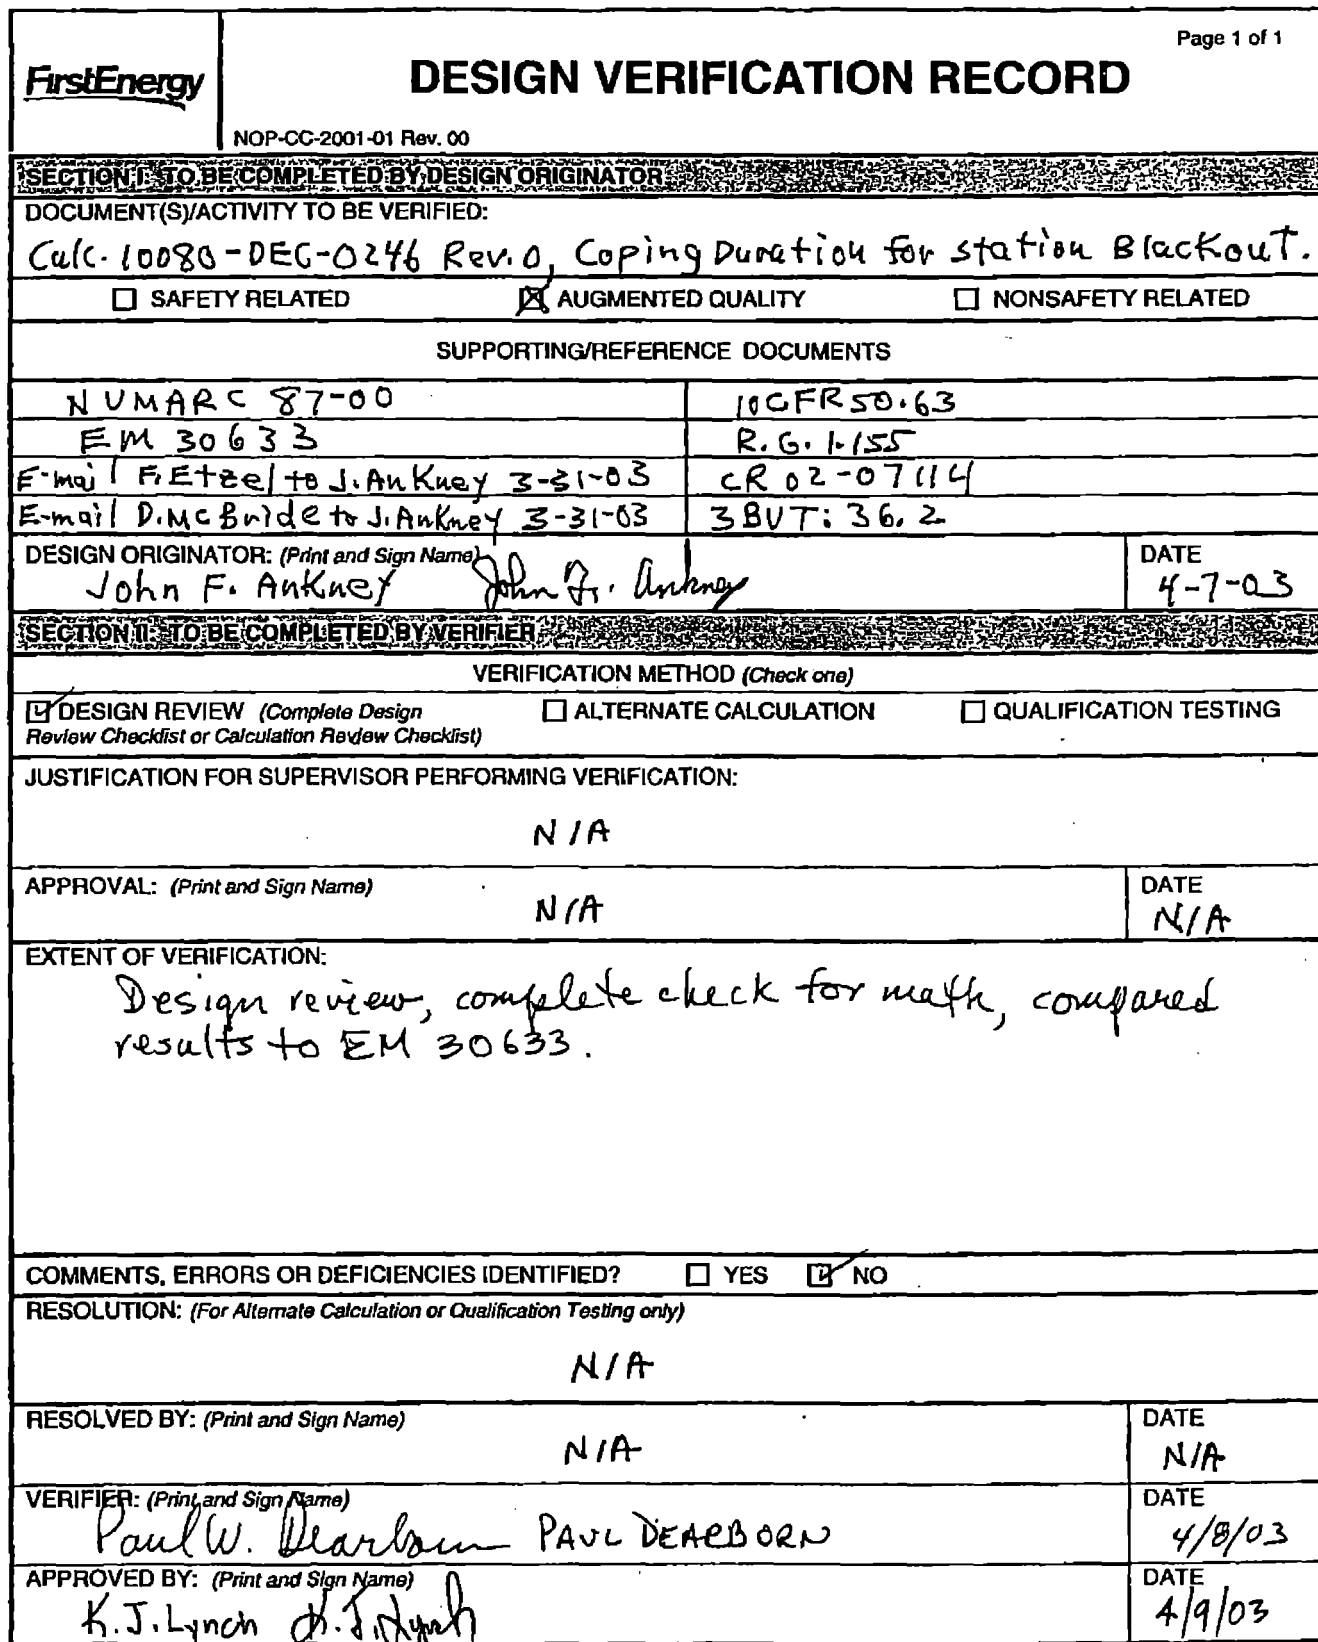 Page 1 of 1
FirstEnergy
DESIGN VERIFICATION RECORD
NOP-CC-2001-01 Rev. 00
SECTION I: TO BE COMPLETED BY DESIGN ORIGINATOR
DOCUMENT(S)/ACTIVITY TO BE VERIFIED:
Calc. 10080-DEC-0246 Rev. 0, Coping Duration for Station Blackout.
☐ SAFETY RELATED ☒ AUGMENTED QUALITY ☐ NONSAFETY RELATED
SUPPORTING/REFERENCE DOCUMENTS
NUMARC 87-00 10CFR50.63
EM 30633 R.G. 1.155
E-mail F. Etzel to J. Ankney 3-31-03 CR 02-07114
E-mail D. McBride to J. Ankney 3-31-03 3BVT: 36.2
DESIGN ORIGINATOR: (Print and Sign Name) DATE
John F. Ankney John F. Ankney 4-7-03
SECTION II: TO BE COMPLETED BY VERIFIER
VERIFICATION METHOD (Check one)
☑ DESIGN REVIEW (Complete Design ☐ ALTERNATE CALCULATION ☐ QUALIFICATION TESTING
Review Checklist or Calculation Review Checklist)
JUSTIFICATION FOR SUPERVISOR PERFORMING VERIFICATION:
N/A
APPROVAL: (Print and Sign Name) DATE
N/A N/A
EXTENT OF VERIFICATION:
Design review, complete check for math, compared
results to EM 30633.
COMMENTS, ERRORS OR DEFICIENCIES IDENTIFIED? ☐ YES ☑ NO
RESOLUTION: (For Alternate Calculation or Qualification Testing only)
N/A
RESOLVED BY: (Print and Sign Name) DATE
N/A N/A
VERIFIER: (Print and Sign Name) DATE
Paul W. Dearborn PAUL DEARBORN 4/8/03
APPROVED BY: (Print and Sign Name) DATE
K.J. Lynch K.J. Lynch 4/9/03